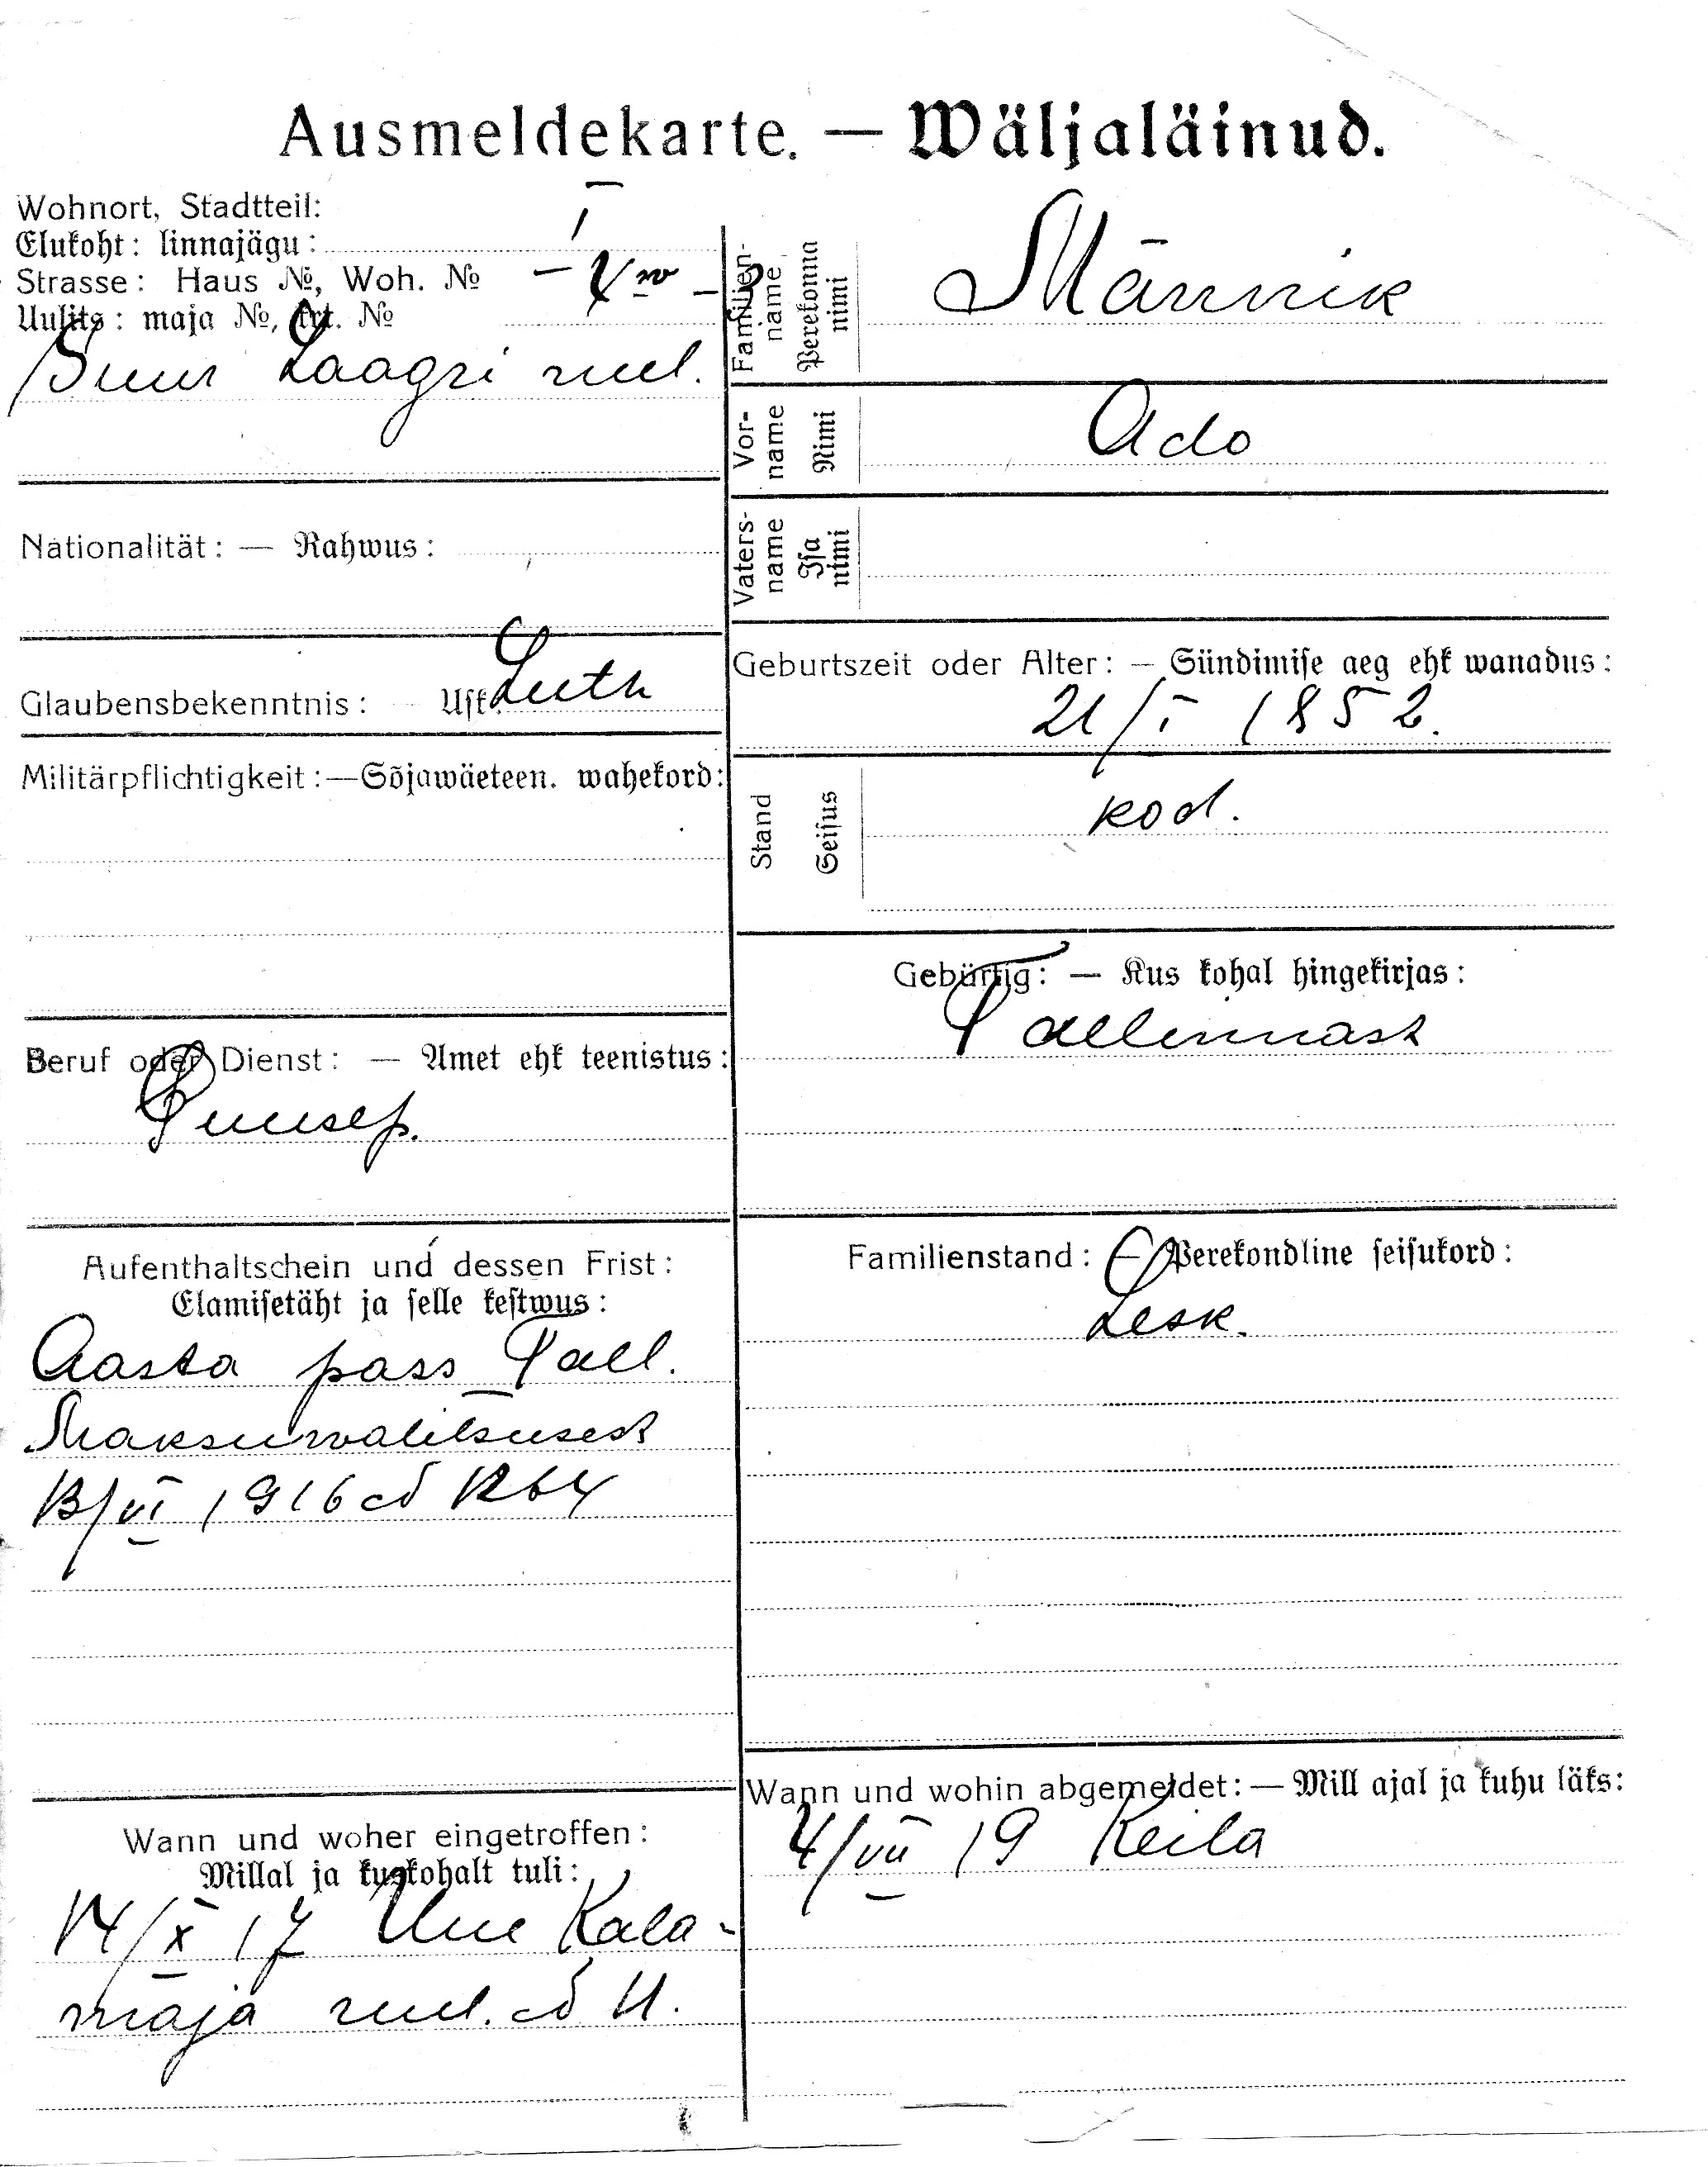 Ausmeldekarte. — Wäljaläinud.
Wohnort, Stadtteil:
Elukoht: linnajägu: I
Strasse: Haus №, Woh. №
Uulits: maja №, krt. №
Suur Laagri uul.
Nationalität: — Rahwus:
Glaubensbekenntnis: Usk: Luth
Militärpflichtigkeit:—Sõjawäeteen. wahekord:
Beruf oder Dienst: — Amet ehk teenistus:
Puusep.
Aufenthaltschein und dessen Frist:
Elamisetäht ja selle kestwus:
Aasta pass Tall.
Maksuwalitsusest
13/VI 1916 № 1264
Wann und woher eingetroffen:
Millal ja kuskohalt tuli:
14/X 17 Uue Kala-
maja uul. № 11.
Familien-
name
Perekonna
nimi
Männik
Vor-
name
Nimi
Ado
Vaters-
name
Isa
nimi
Geburtszeit oder Alter: — Sündimise aeg ehk wanadus:
21/I 1852.
Stand
Seisus
kod.
Gebürtig: — Kus kohal hingekirjas:
Tallinnast
Familienstand: — Perekondline seisukord:
Lesk.
Wann und wohin abgemeldet: — Mill ajal ja kuhu läks:
4/VII 19 Keila